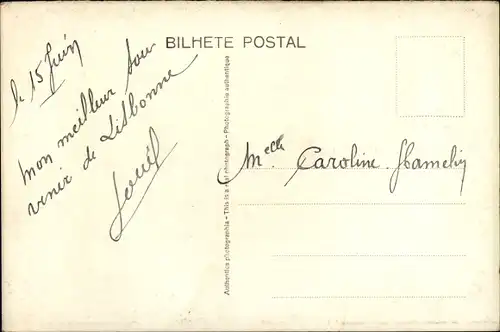 BILHETE POSTAL
le 15 Juin
mon meilleur sou
venir de Lisbonne
Authentics photographie - This is a real photograph - Photographie authentique
Melle Caroline Hamelin